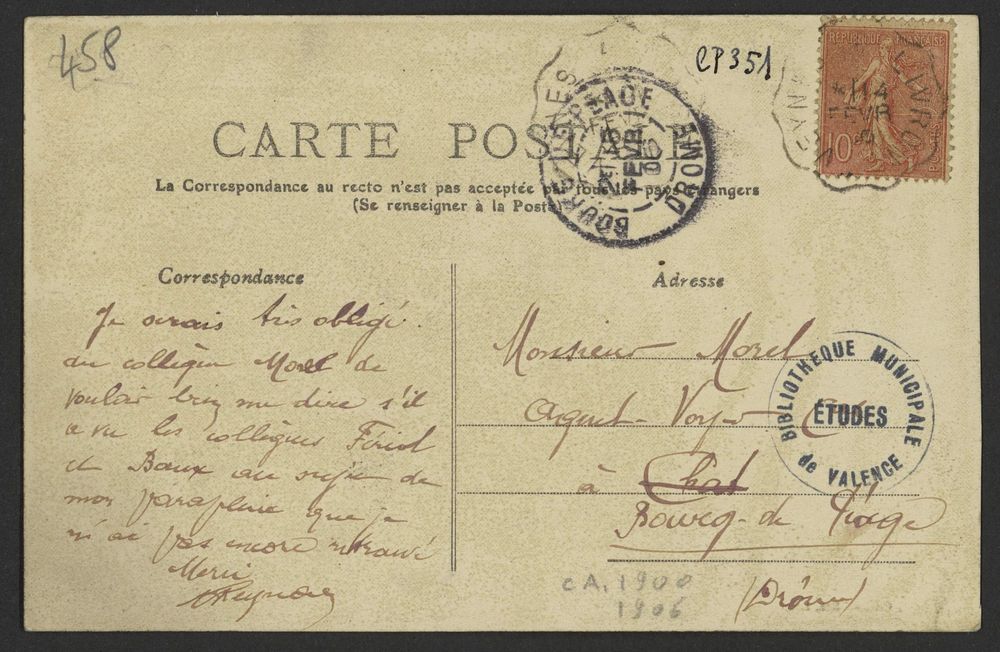 458
CP351
RÉPUBLIQUE FRANÇAISE
10
14
LIVRO
CARTE POSTALE
BOURG DE PEAGE
15
FEVR
06
DROME
La Correspondance au recto n'est pas acceptée par tous les pays étrangers
(Se renseigner à la Poste)
Correspondance
Je serais très obligé
au collègue Morel de
vouloir bien me dire s'il
a vu les collègues Feriol
et Baux au sujet de
mon parapluie que je
n'ai pas encore retrouvé
Merci
Adresse
Monsieur Morel
Agent-Voyer
à Chat
Bourg-de Péage
(Drôme)
BIBLIOTHEQUE MUNICIPALE
ÉTUDES
de VALENCE
CA. 1900
1906